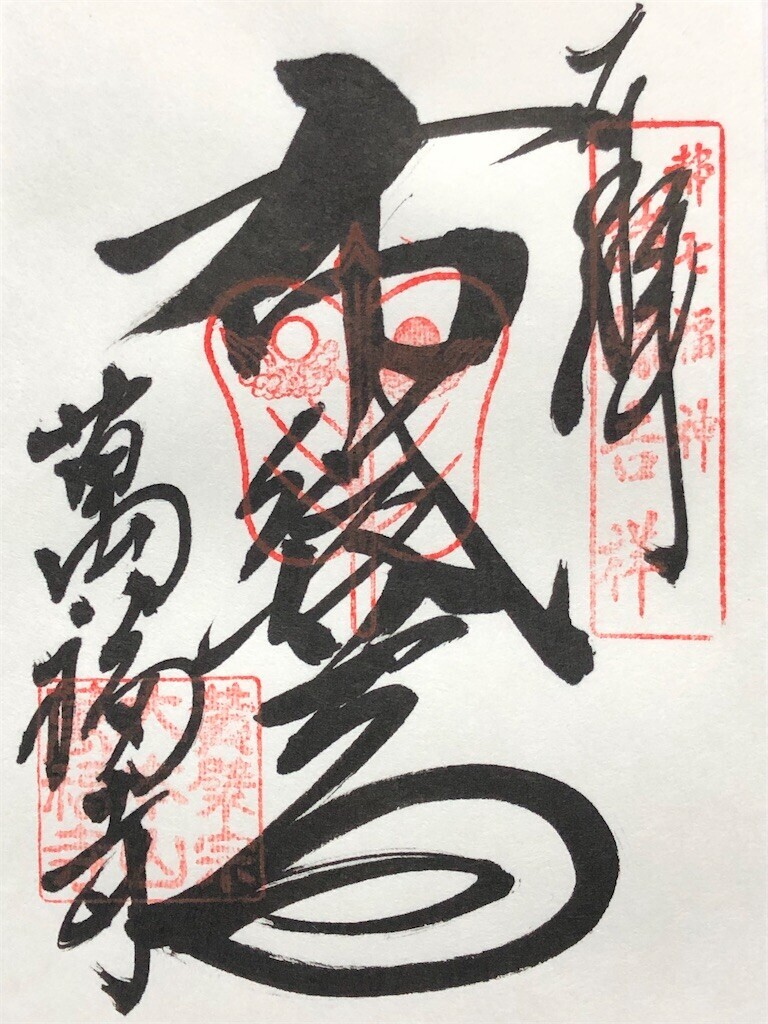 都七福神
吉祥
布袋尊
萬福寺
黄檗宗
大本山
萬福寺